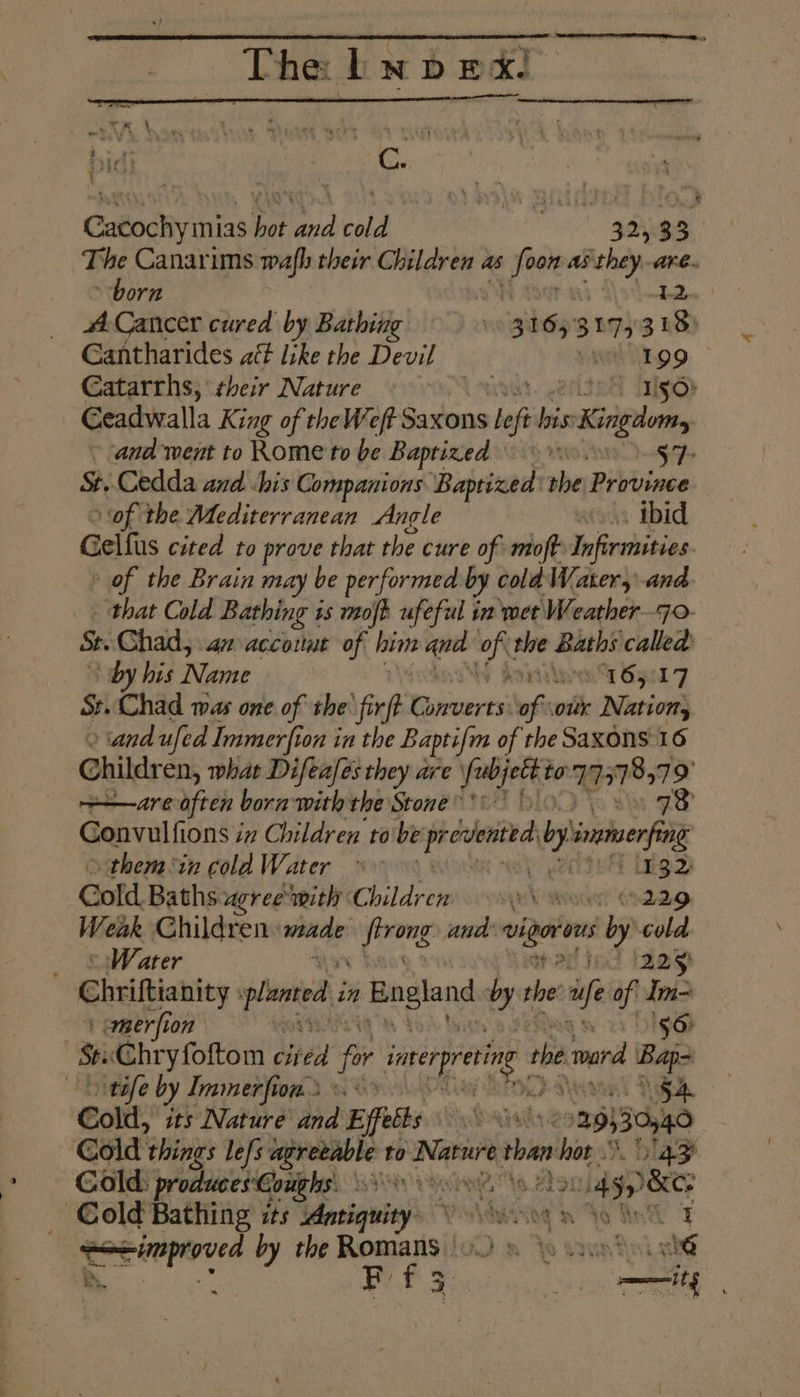 The INDEX.
C.
Cacochymias hot and cold 32, 33
The Canarims waſh their Children as ſoon as they are
born 12
A Cancer cured by Bathing 316, 317, 318
Cantharides act like the Devil 199
Catarrhs, their Nature 150
Ceadwalla King of the Weſt Saxons left his Kingdom,
and went to Rome to be Baptized 57
St. Cedda and his Companions Baptized the Province
of the Mediterranean Angle ibid
Celſus cited to prove that the cure of moſt Infirmities
of the Brain may be performed by cold Water, and
that Cold Bathing is moſt uſeful in wet Weather 70
St. Chad, an account of him and of the Baths called
by his Name 16, 17
St. Chad was one of the firſt Converts of our Nation,
and uſed Immerſion in the Baptiſm of the Saxons 16
Children, what Diſeaſes they are ſubject to 77, 78, 79
——are often born with the Stone 78
Convulſions in Children to be prevented by immerſing
them in cold Water 132
Cold Baths agree with Children 229
Weak Children made ſtrong and vigorous by cold
Water 225
Chriſtianity planted in England by the uſe of Im-
merſion 56
St. Chryſoſtom cited for interpreting the word Bap-
tiſe by Immerſion 54
Cold, its Nature and Effects 29, 30, 40
Cold things leſs agreeable to Nature than hot 43
Cold produces Coughs 45, &c.
Cold Bathing its Antiquity 1
——improved by the Romans
F f 3 ——its